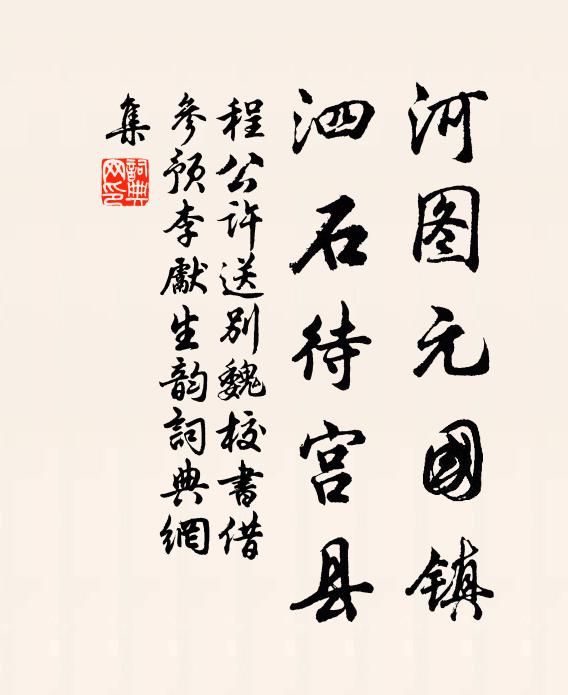 河图元国镇
泗石待宫县
程公许送别魏校書借
參预李獻生韵詞典網
集
詞典网印